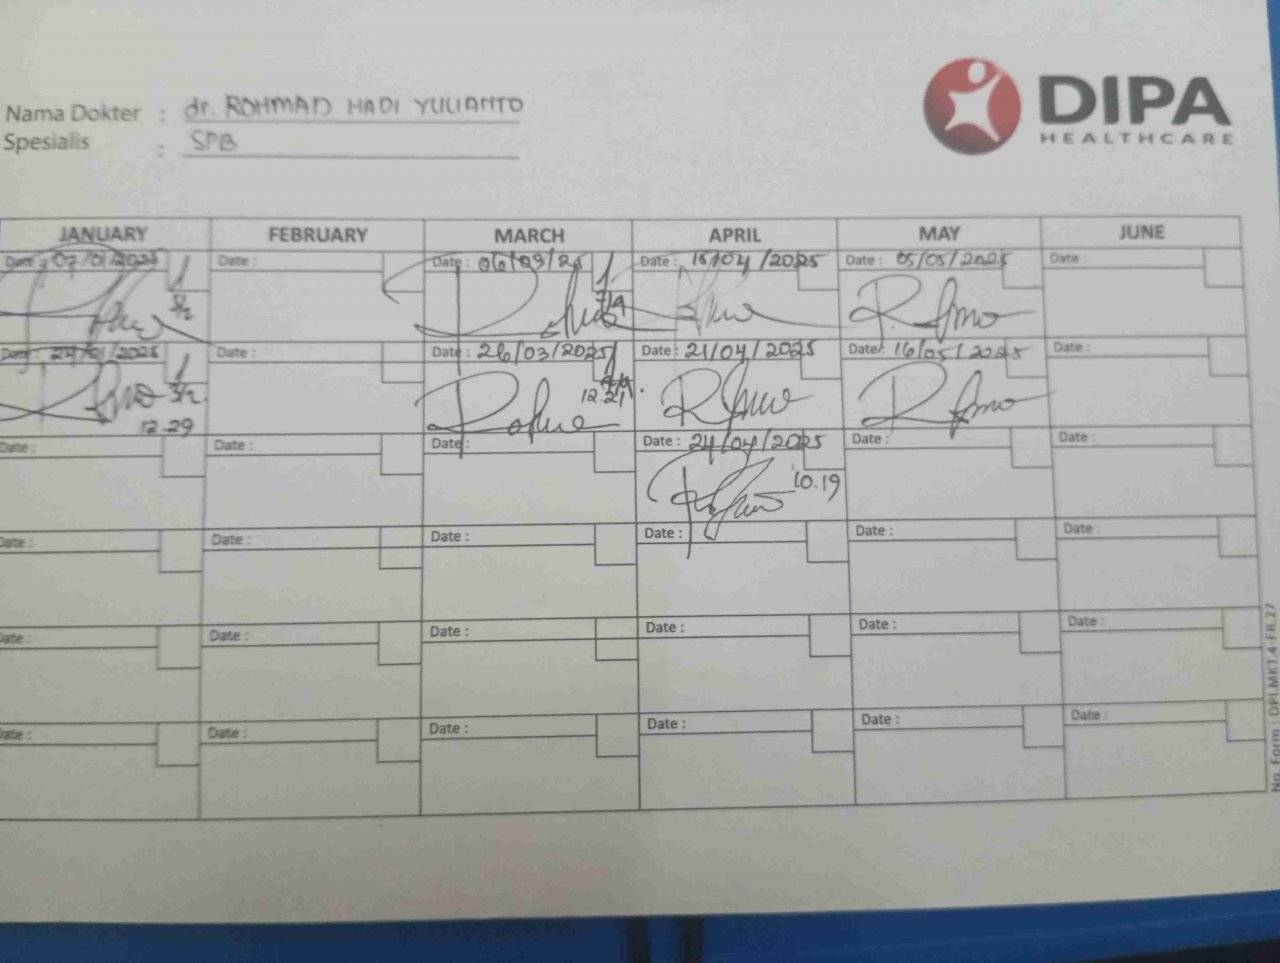 Nama Dokter : dr. ROHMAD HADI YULIANTO
Spesialis : SPB
DIPA
HEALTHCARE
JANUARY FEBRUARY MARCH APRIL MAY JUNE
Date : 07/01/2025 Date : Date : 06/03/25 Date : 15/04/2025 Date : 05/05/2025 Date :
Date : 24/01/2025 Date : Date : 26/03/2025 Date : 21/04/2025 Date : 16/05/2025 Date :
12.21
12.29
Date : Date : Date : Date : 24/04/2025 Date : Date :
10.19
Date : Date : Date : Date : Date : Date :
Date : Date : Date : Date : Date : Date :
Date : Date : Date : Date : Date : Date :
No. Form : DPI.MKT.4-FR.27